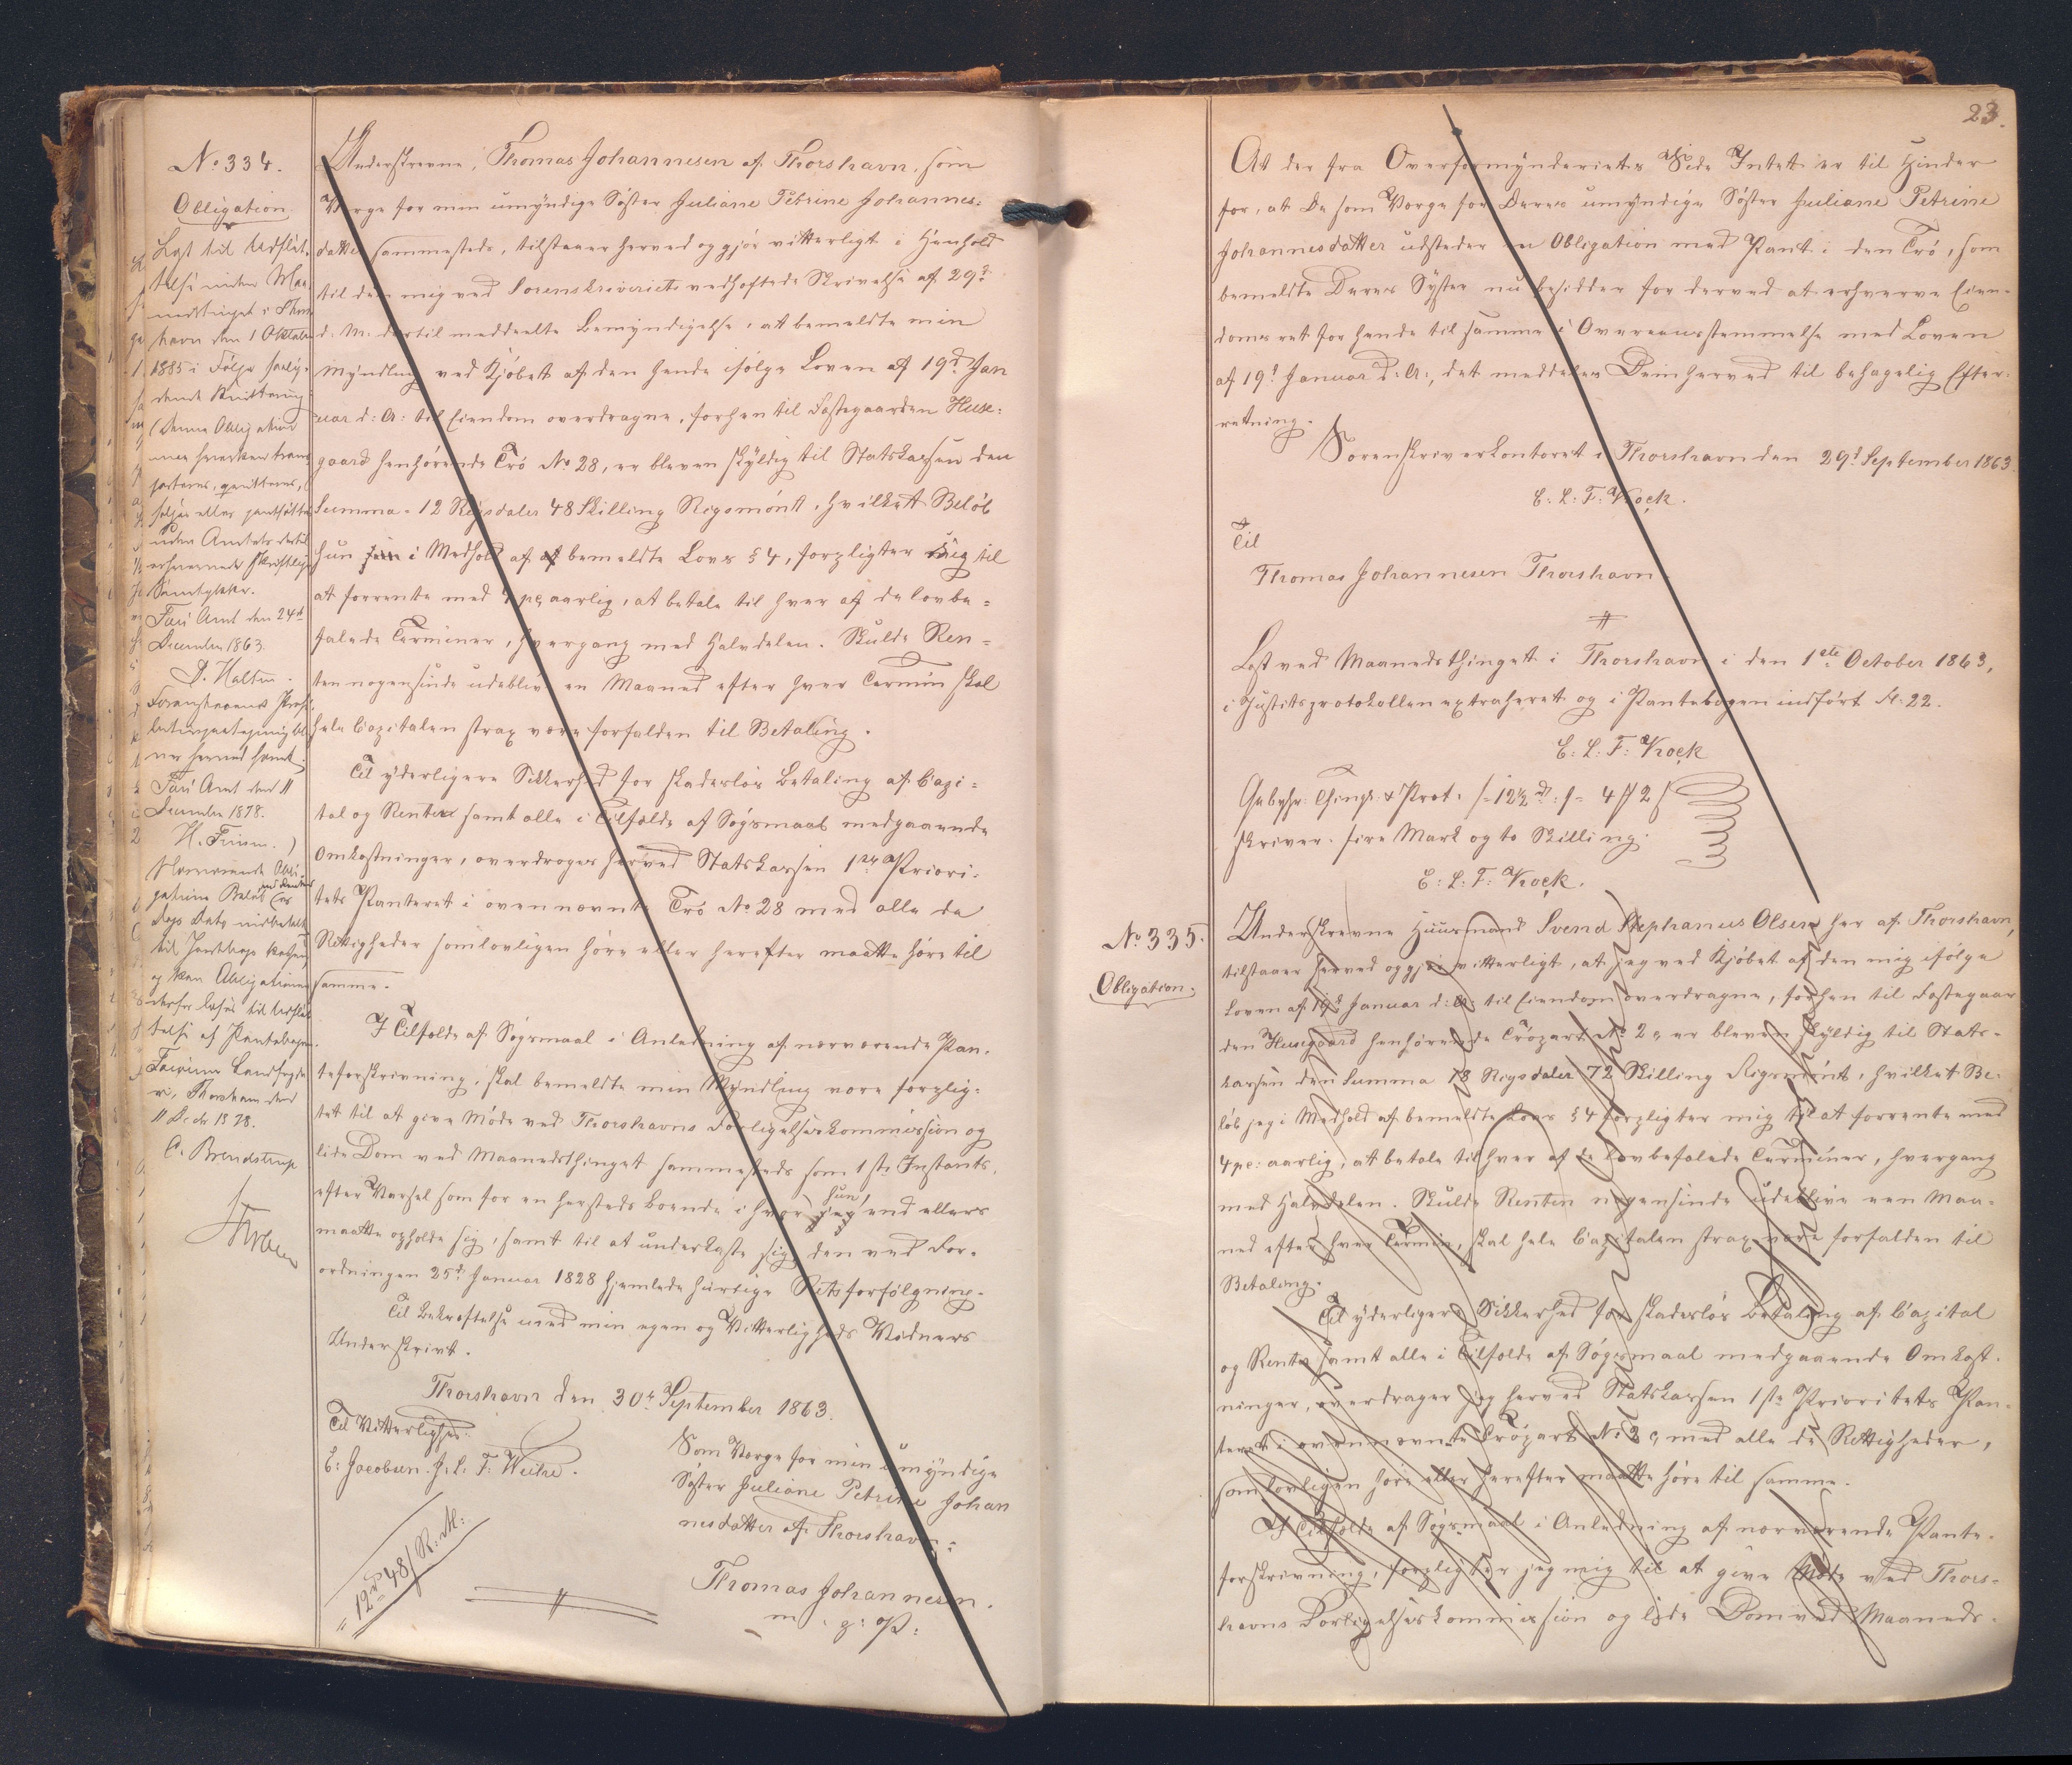 No. 334.
Obligation.
Læst til Udslet-
telse inden Maa-
nedstinget i Thors-
havn den 1 Oktober
1885 i Følge
dende Kvittering
(Denne Obligation
maa hverken trans-
porteres, qvitteres,
sælges eller pantsættes
uden Amtets dertil
erhvervede skriftlige
Samtykke.
Færø Amt den 24de
December 1863.
Dahlerup.
Foranstaaende
bliver herved hævet.
Færø Amt den 11
December 1878.
H. Finsen.)
Nærværende Obli-
gations Beløb med Renter er
Dags Dato indbetalt
til Jordebogs Kassen,
og kan Obligationen
derfor læses til Udslet-
telse af Pantebogen.
Færøerne Landfoge-
ri, Thorshavn den
11 Decbr 1878.
C. Brendstrup
Underskrevne, Thomas Johannesen af Thorshavn, som
Værge for min umyndige Søster Juliane Petrine Johannes-
datter sammesteds, tilstaaer herved og gjør vitterligt i Henhold
til den mig ved Sorenskriveriets vedhæftede Skrivelse af 29d
d. M. dertil meddeelte Bemyndigelse, at bemeldte min
Myndling ved Kjøbet af den hende ifølge Loven af 19d Jan
uar d: A: til Eiendom overdragne, forhen til Fæstegaarden Huse-
gaard henhørende Trø No. 28, er bleven skyldig til Statskassen den
Summa = 12 Rigsdaler 48 Skilling Rigsmønt, hvilket Beløb
hun i Medhold af bemeldte Lovs § 4, forpligter sig til
at forrente med 4 pc aarlig, at betale til hver af de lovbe-
falede Terminer, hvergang med Halvdelen. Skulde Ren-
ten nogensinde udeblive en Maaned efter hver Termin skal
hele Capitalen strax være forfalden til Betaling.
Til yderligere Sikkerhed for skadesløs Betaling af Capi-
tal og Renter samt alle i Tilfælde af Søgsmaal medgaaende
Omkostninger, overdrages herved Statskassen 1ste Priori-
tets Panteret i ovennævnte Trø No. 28 med alle de
Rettigheder som lovligen høre eller herefter maatte høre til
samme.
I Tilfælde af Søgsmaal i Anledning af nærværende Pan-
teforskrivning, skal bemeldte min Myndling være forplig-
tet til at give Møde ved Thorshavns Forligelseskommission og
lide Dom ved Maanedsthinget sammesteds som 1ste Instants,
efter Varsel som for en hersteds boende i hvor hun end ellers
maatte opholde sig, samt til at underkaste sig den ved For-
ordningen 25d Januar 1828 hjemlede hurtige Retsforfølgning.
Til Bekræftelse med min egen og Vitterligheds Vidners
Underskrivt.
Thorshavn den 30te September 1863.
Til Vitterlighed:
E: Jacobsen. J. L. F: Weihe.
Som Værge for min umyndige
Søster Juliane Petrine Johan
nesdatter af Thorshavn:
Thomas Johannesen.
m: g: P:
= 12rd 48/ R: M:
23.
At der fra Overformynderiets Side Intet er til Hinder
for, at De som Værge for Deres umyndige Søster Juliane Petrine
Johannesdatter udsteder en Obligation med Pant i den Trø, som
bemeldte Deres Syster nu besidder for derved at erhverve Eien-
doms ret for hende til samme i Overeensstemmelse med Loven
af 19d Januar d: A:, det meddeles Dem herved til behagelig Efter-
retning.
Sorenskriverkontoret i Thorshavn den 29d September 1863
E: L: F: Krock.
Til
Thomas Johannesen Thorshavn.
Læst ved Maanedsthinget i Thorshavn i den 1ste October 1863,
i Justitsprotokollen extraheret og i Pantebogen indført N: 22.
E: L: F: Krock
Gebyhr: Thingl. & Prot. /=12½ rd:/= 4 # 2 /
skriver. fire Mark og to Skilling.
E: L: F: Krock.
No. 335.
Obligation.
Underskrevne Huusmand Svend Stephanus Olsen her af Thorshavn,
tilstaaer herved og gjør vitterligt, at jeg ved Kjøbet af den mig ifølge
Loven af 19d Januar d: A: til Eiendom overdragne, forhen til Fæstegaar
den Husegaard henhørende Trøpart No. 2c, er bleven skyldig til Stats-
kassen den Summa 18 Rigsdaler 72 Skilling Rigsmønt, hvilket Be-
løb jeg i Medhold af bemeldte Lovs § 4 forpligter mig til at forrente med
4 pc: aarlig, at betale til hver af de lovbefalede Terminer, hvergang
med Halvdelen. Skulde Renten nogensinde udeblive een Maa-
ned efter hver Termin, skal hele Capitalen strax være forfalden til
Betaling.
Til yderligere Sikkerhed for skadesløs Betaling af Capital
og Renter samt alle i Tilfælde af Søgsmaal medgaaende Omkost-
ninger, overdrager jeg herved Statskassen 1ste Prioritets Pan-
teret i ovennævnte Trøpart No. 2c, med alle de Rettigheder,
som lovligen høre eller herefter maatte høre til samme.
I Tilfælde af Søgsmaal i Anledning af nærværende Pante-
forskrivning, forpligter jeg mig til at give Møde ved Thors-
havns Forligelseskommission og lide Dom ved Maaneds-